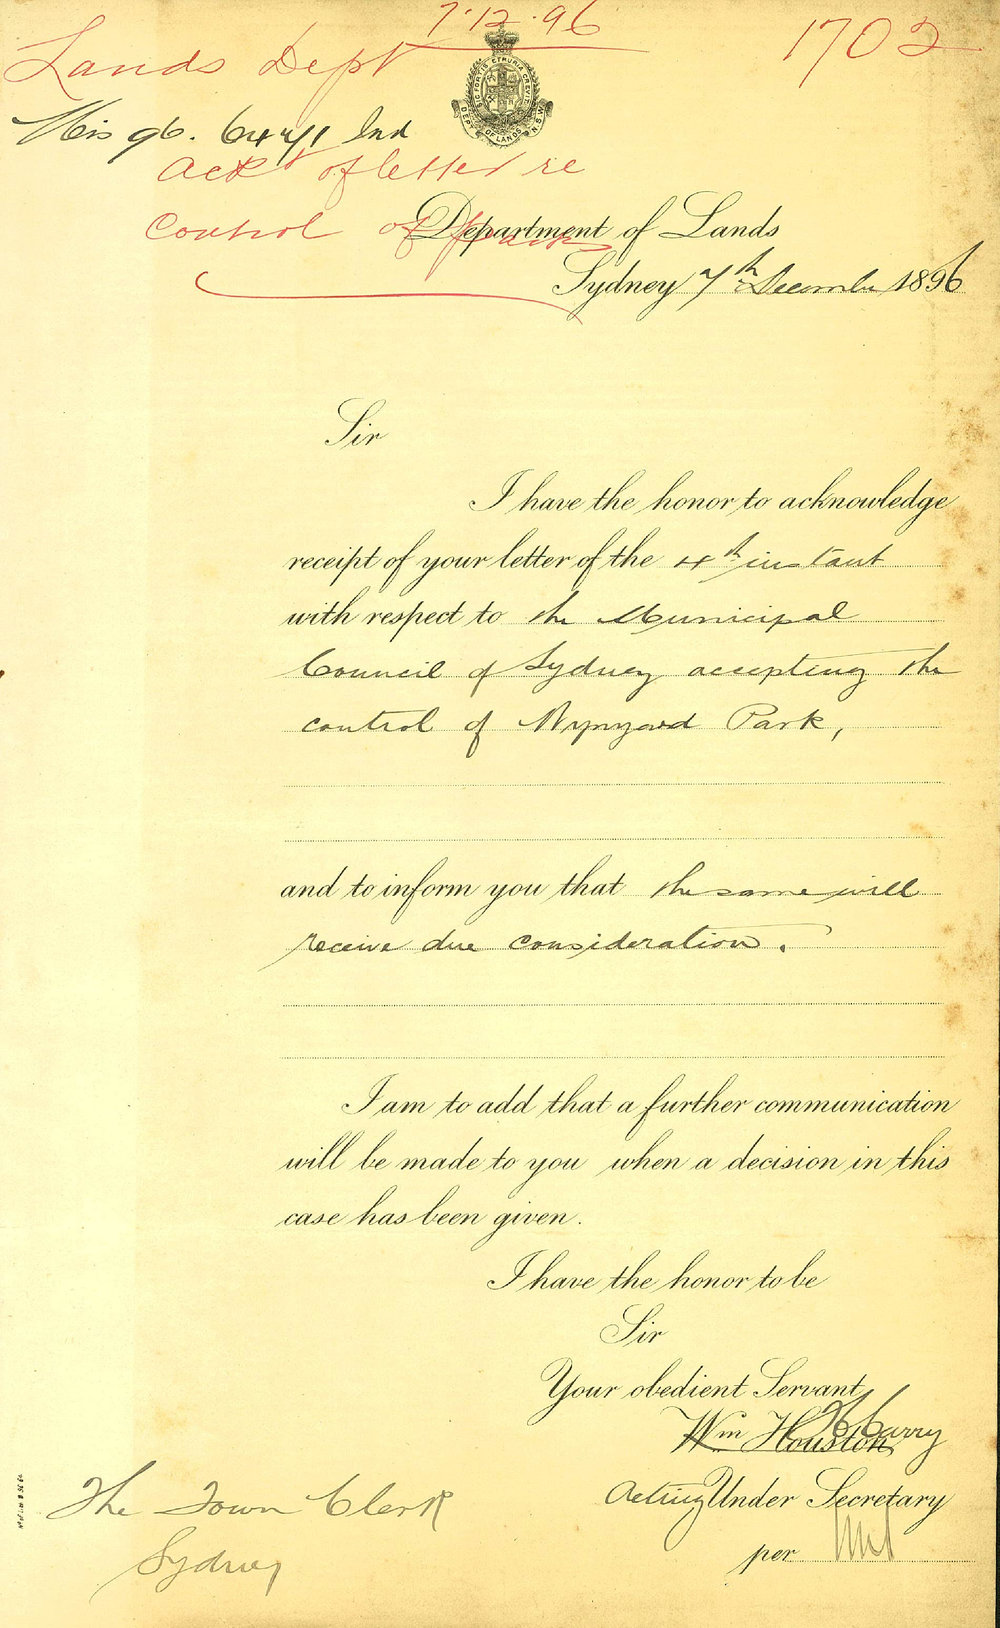 7.12.96
1702
Lands Dept
Mis 96. Ind
SIC FORTIS ETRURIA CREVIT
DEPT OF LANDS N.S.W.
Ack of letter re
Control of Park
Department of Lands
Sydney 7th December 1896
Sir
I have the honor to acknowledge
receipt of your letter of the 4th instant
with respect to the Municipal
Council of Sydney accepting the
control of Wynyard Park,
and to inform you that the same will
receive due consideration.
I am to add that a further communication
will be made to you when a decision in this
case has been given.
I have the honor to be
Sir
Your obedient Servant,
Wm Houston
Acting Under Secretary
per
The Town Clerk
Sydney